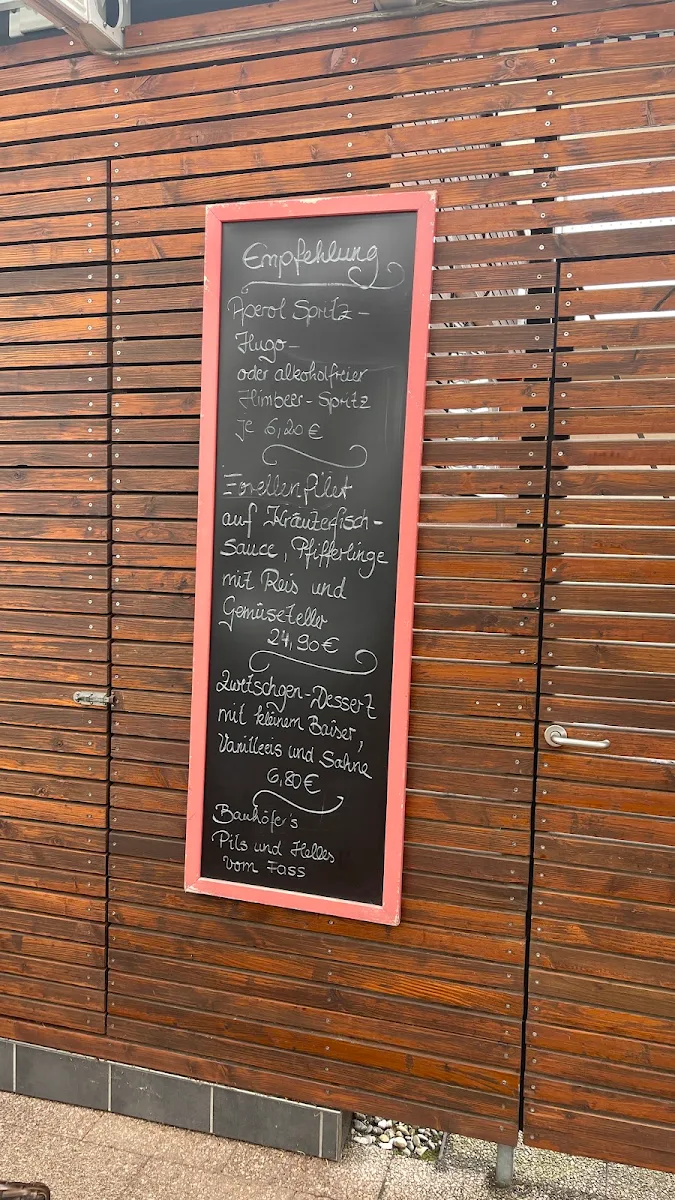 Empfehlung
Aperol Spritz -
Hugo -
oder alkoholfreier
Himbeer - Spritz
je 6,20 €
Forellenfilet
auf Kräuterfisch -
sauce, Pfifferlinge
mit Reis und
Gemüseteller
24,90 €
Zwetschgen - Dessert
mit kleinem Baiser,
Vanilleeis und Sahne
6,80 €
Bauhöfer's
Pils und Helles
vom Fass